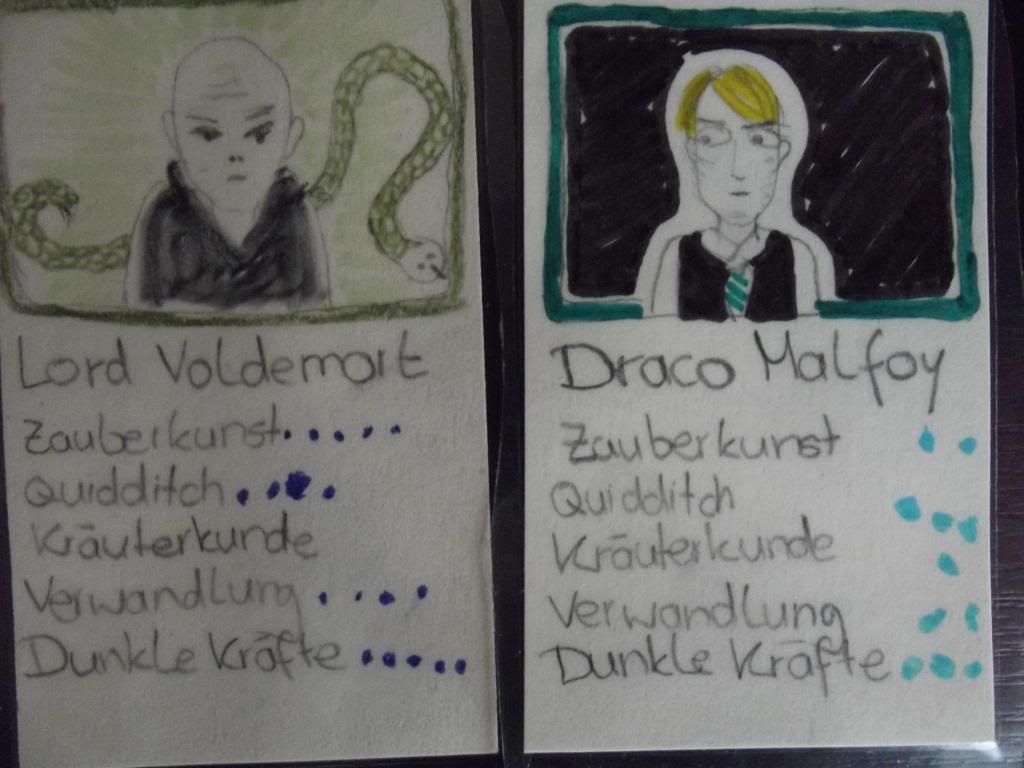 Lord Voldemort
Zauberkunst
Quidditch
Kräuterkunde
Verwandlung
Dunkle Kräfte
Draco Malfoy
Zauberkunst
Quidditch
Kräuterkunde
Verwandlung
Dunkle Kräfte